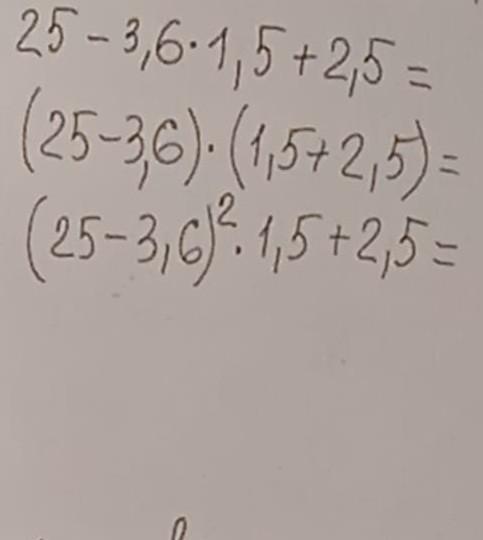 25 - 3,6 · 1,5 + 2,5 =
(25 - 3,6) · (1,5 + 2,5) =
(25 - 3,6)² · 1,5 + 2,5 =